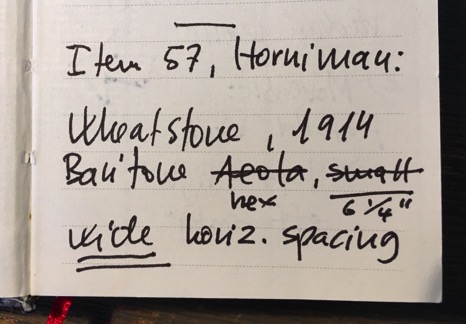 Item 57, Horniman:
Wheatstone, 1914
Baritone Aeola, small
hex 6 1/4"
wide horiz. spacing